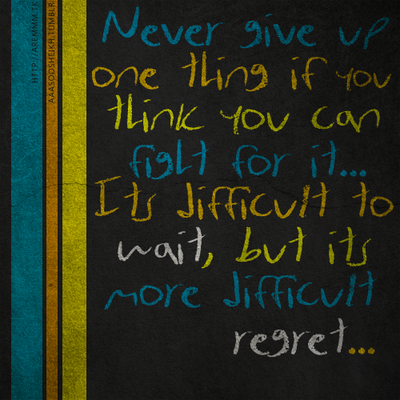 Never give up
one thing if you
think you can
fight for it...
Its difficult to
wait, but its
more difficult
regret...
AAASODSHEIKH.TUMBLR